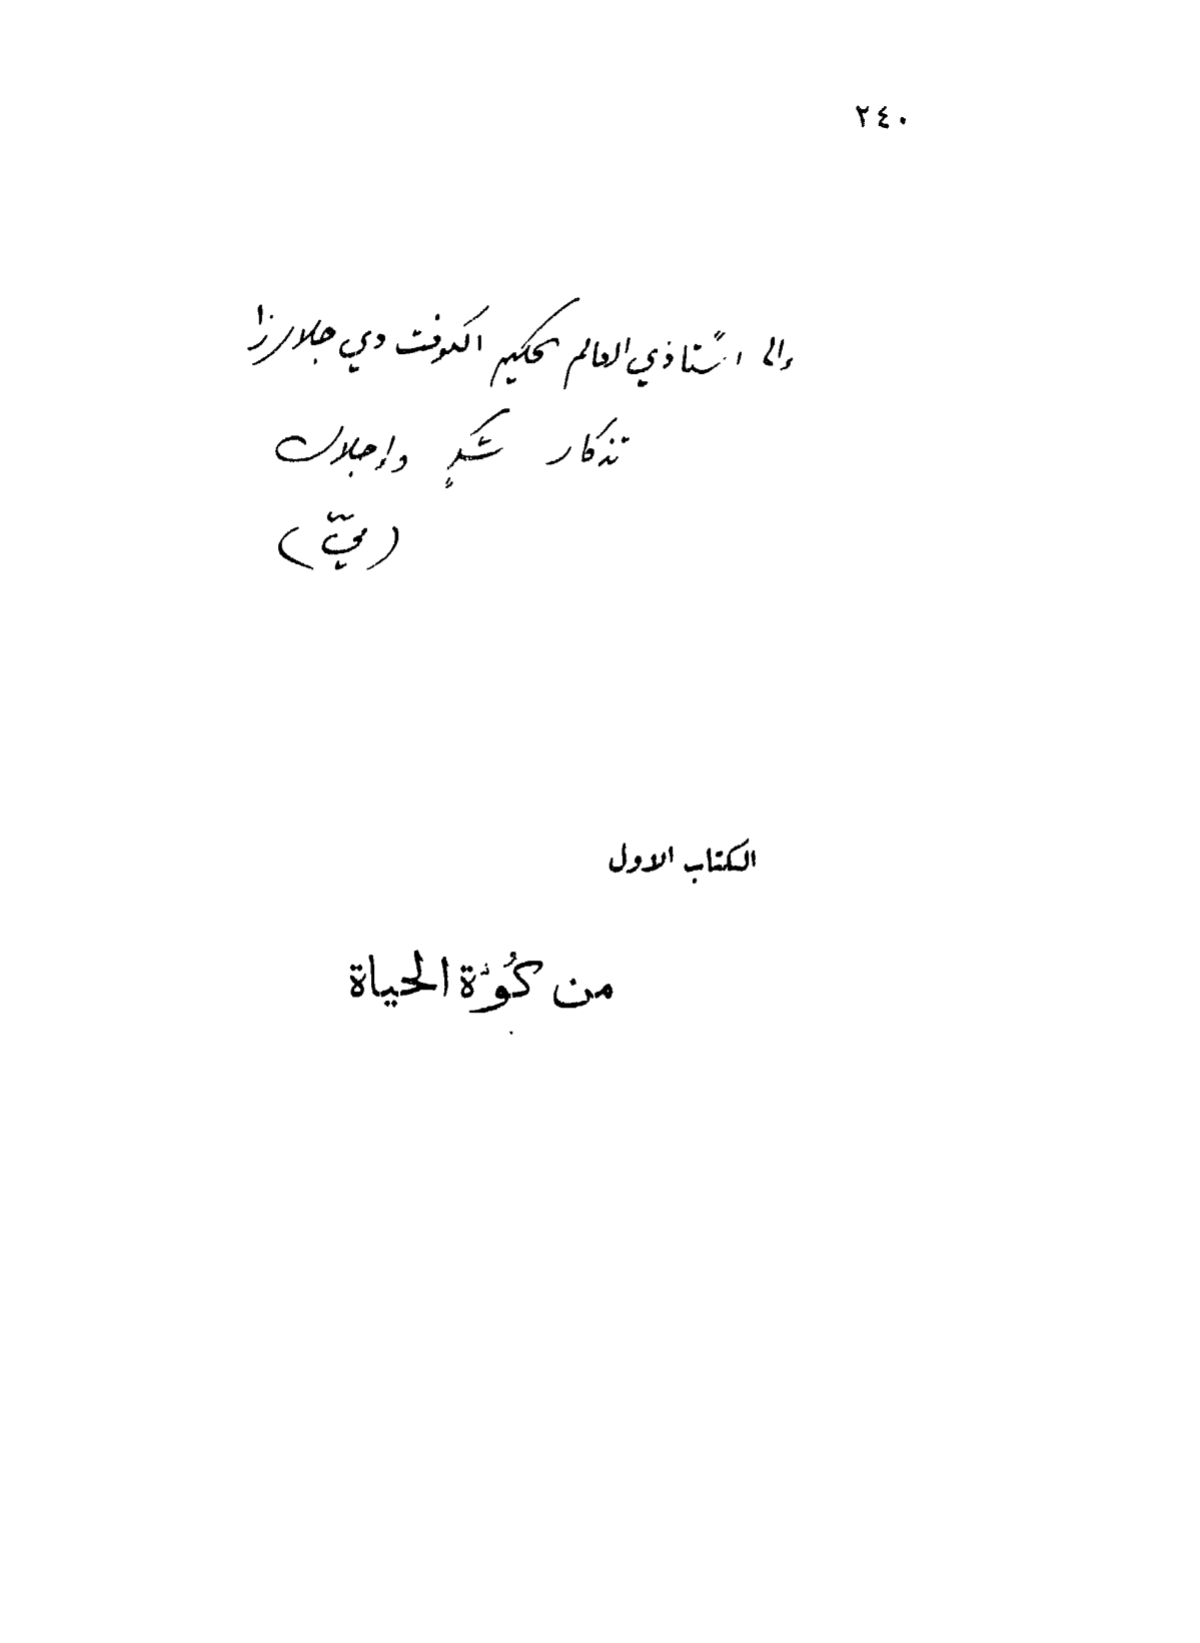 ٢٤٠
إلى استاذي العالم الحكيم الكونت دي جلارزا
تذكار شكرٍ وإجلال
(ميّ)
الكتاب الاول
من كُوَّة الحياة